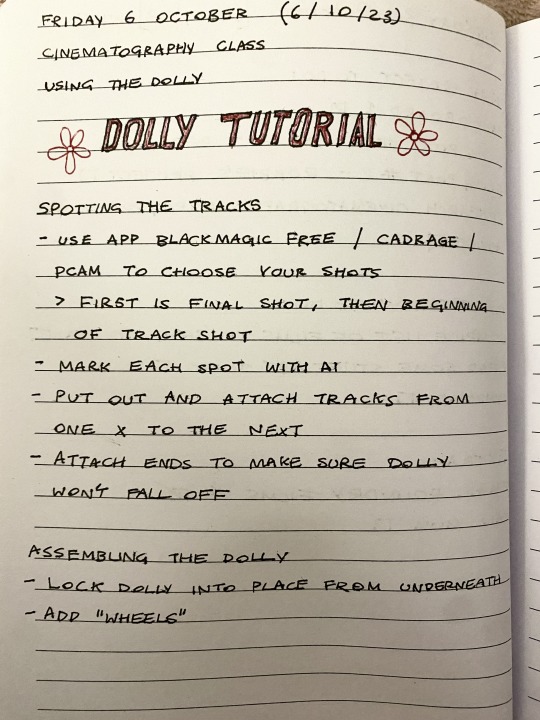 FRIDAY 6 OCTOBER (6/10/23)
CINEMATOGRAPHY CLASS
USING THE DOLLY
DOLLY TUTORIAL
SPOTTING THE TRACKS
- USE APP BLACKMAGIC FREE / CADRAGE /
PCAM TO CHOOSE YOUR SHOTS
> FIRST IS FINAL SHOT, THEN BEGINNING
OF TRACK SHOT
- MARK EACH SPOT WITH A
- PUT OUT AND ATTACH TRACKS FROM
ONE X TO THE NEXT
- ATTACH ENDS TO MAKE SURE DOLLY
WON'T FALL OFF
ASSEMBLING THE DOLLY
- LOCK DOLLY INTO PLACE FROM UNDERNEATH
- ADD "WHEELS"